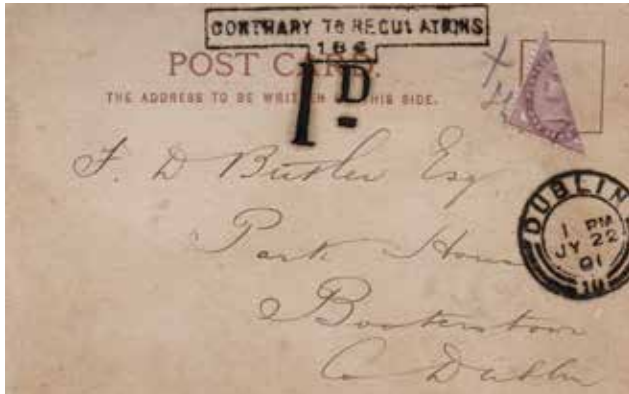 CONTRARY TO REGULATIONS
186
POST CARD.
1D
THE ADDRESS TO BE WRITTEN ON THIS SIDE.
F. D Butler Esq
Park House
Booterstown
Co Dublin
DUBLIN
1 PM
JY 22
01
10